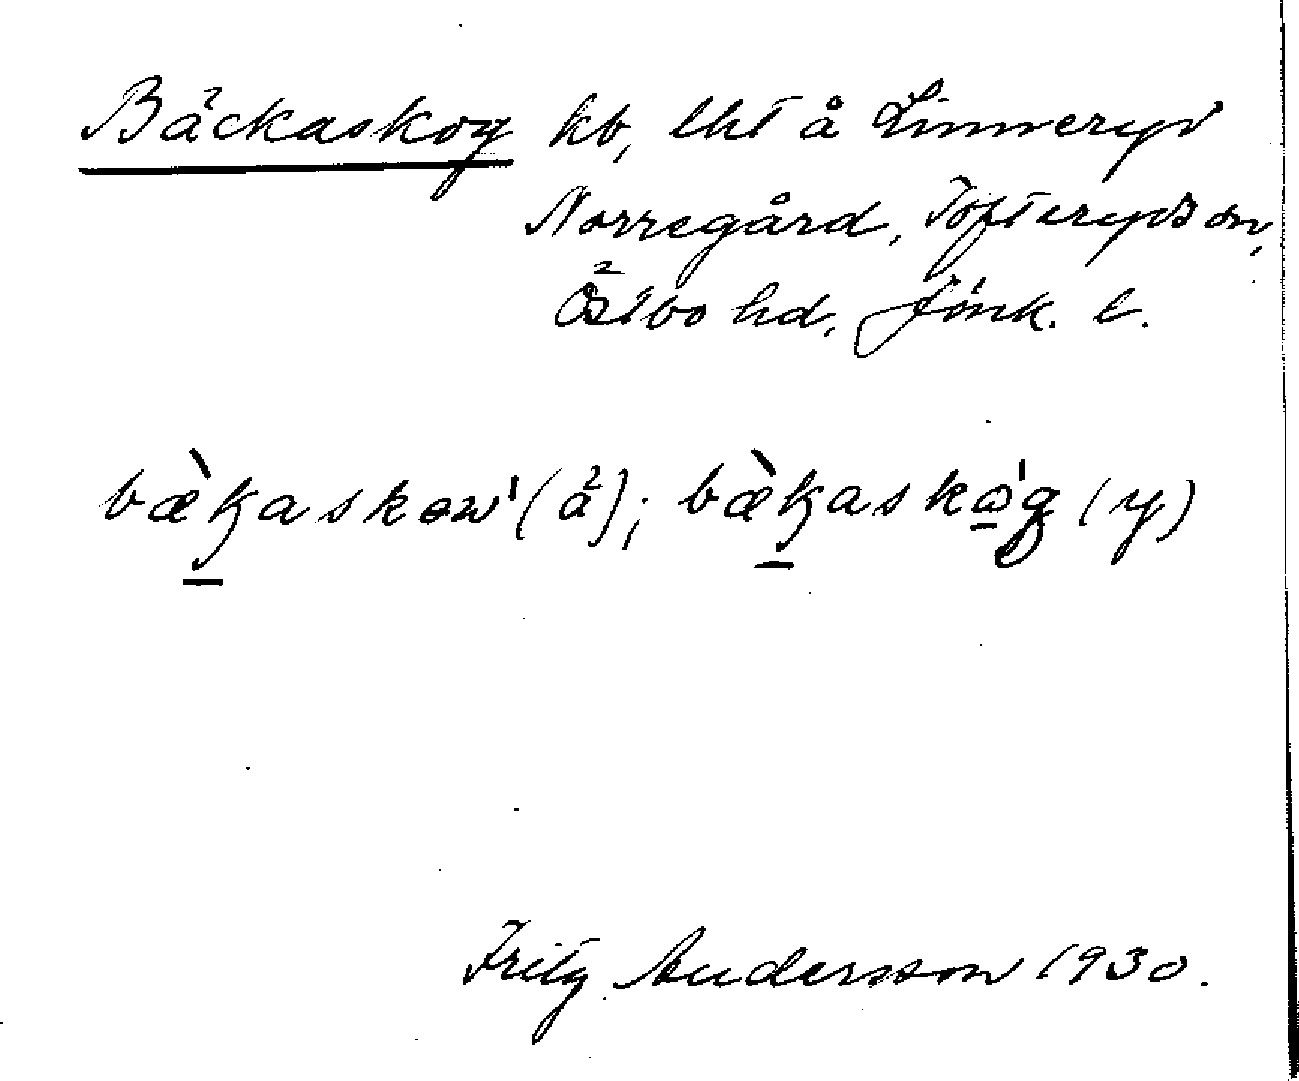 Bäckaskog kb, lht å Linneryd
Norregård, Tofteryds sn,
Östbo hd, Jönk. l.
bæ̀kaskow' (ä); bæ̀kaskɷ'g (y)
Fritz Andersson 1930.